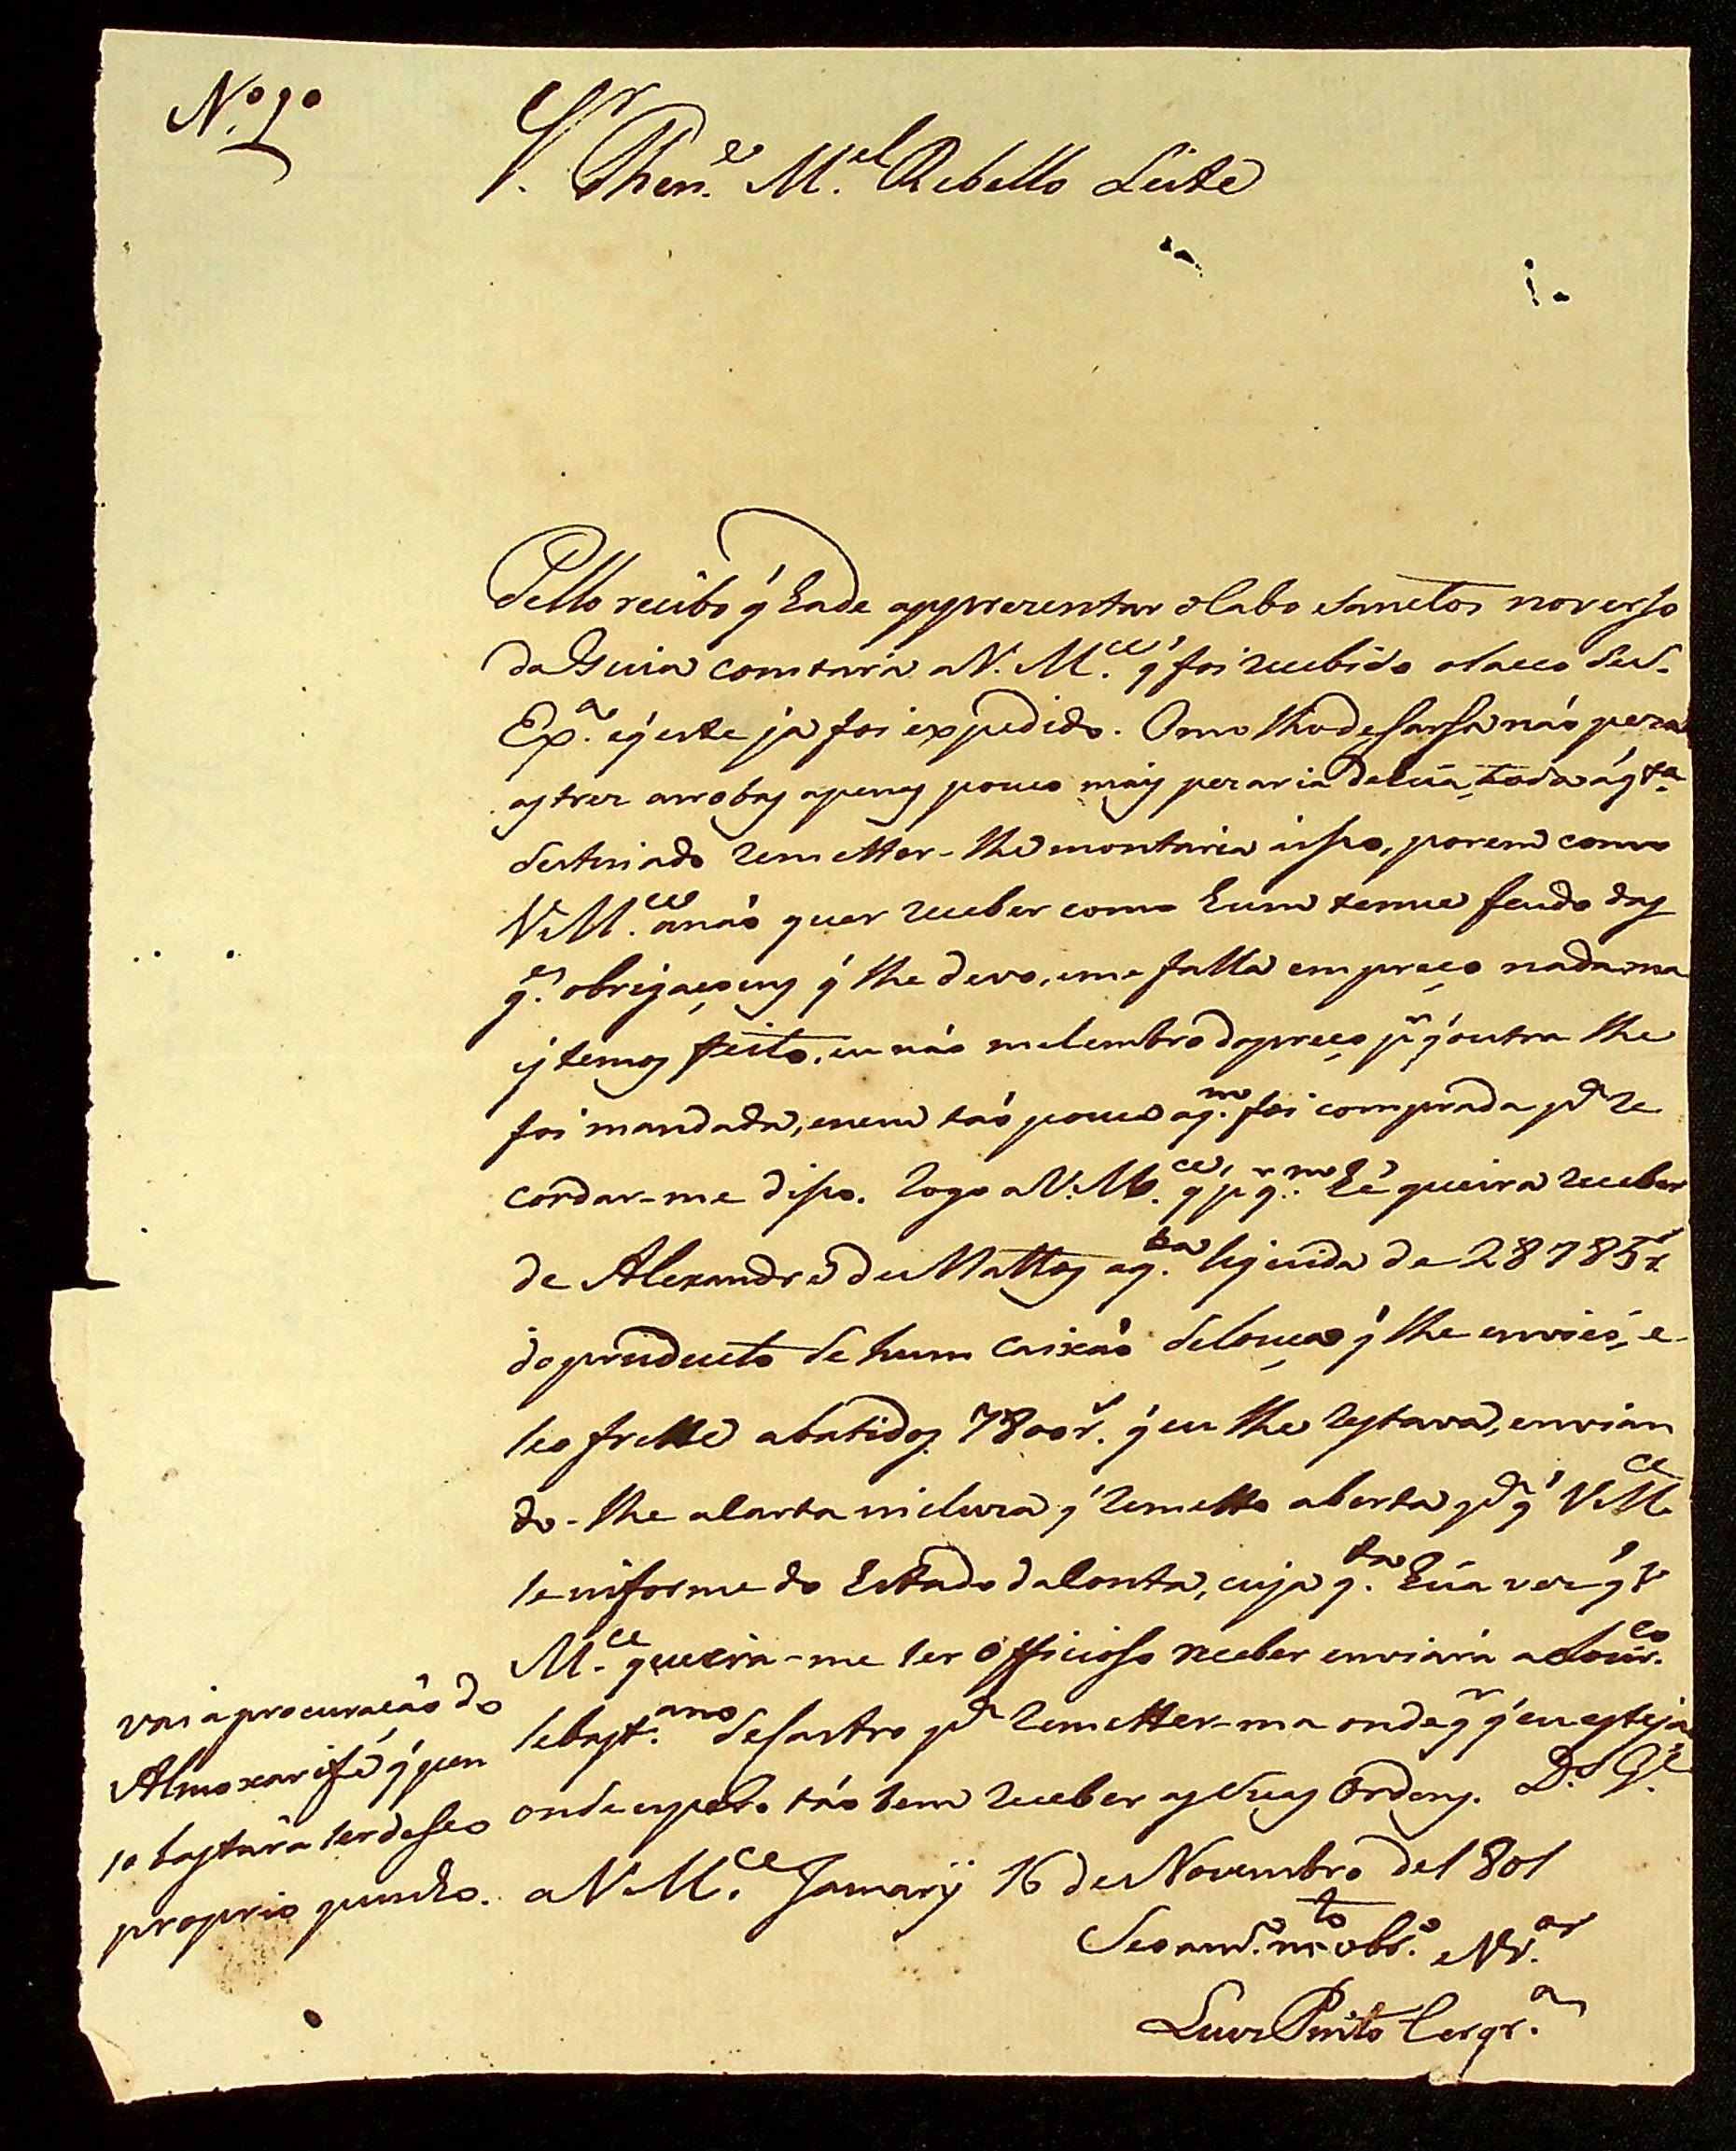 N.º 1º
S.r Then.e M.el Rebello Leite
Pello recibo q' hade apprezentar o Cabo Sanctos no verso
da Guia constará a V. M.ce q' foi recebido o Sacco de S.
Ex.a e q' este ja foi expedido. O molho de Sarsa não peza
as trez arrobas apenas pouco mais pezaria de hũa, toda a q.ta
destinado remetter-lhe montaria a isso, porem como
V. M.ce a não quer receber como hum tenue feudo das
g.es obrigaçoens q' lhe devo, e me falla em preço nada ma
is temos feito, eu não me lembro do preço p.r q' outra lhe
foi mandada, e nem tão pouco a q.m foi comprada p.a re
cordar-me disso. Rogo a V. M.ce q' p.r q.m hé queira receber
de Alexandre de Mattos a q.ta liquida de 28785 r.s
do producto de hum caixão de louça q' lhe enviei, e
seo frette abatidos 7800 r.s q' eu lhe restava, envian
do-lhe a Carta incluza q' remetto aberta p.a q' V. M.ce
se informe do Estado da Conta, cuja q.ta hũa vez q' V.
M.ce queira-me ser officioso receber enviará a Lour.co
Sebast.ano de Castro p.a remetter-ma onde q.r q' eu esteja
onde espero tão bem receber as Suas Ordens. D.s G.e
a V. M.ce Jamary 16 de Novembro de 1801
Seo am.o m.to obr.o e V.or
Luiz Pinto Cerqr.a
vai a procuração do
Almoxarife q' pen
so bastará ser de seo
proprio punho.